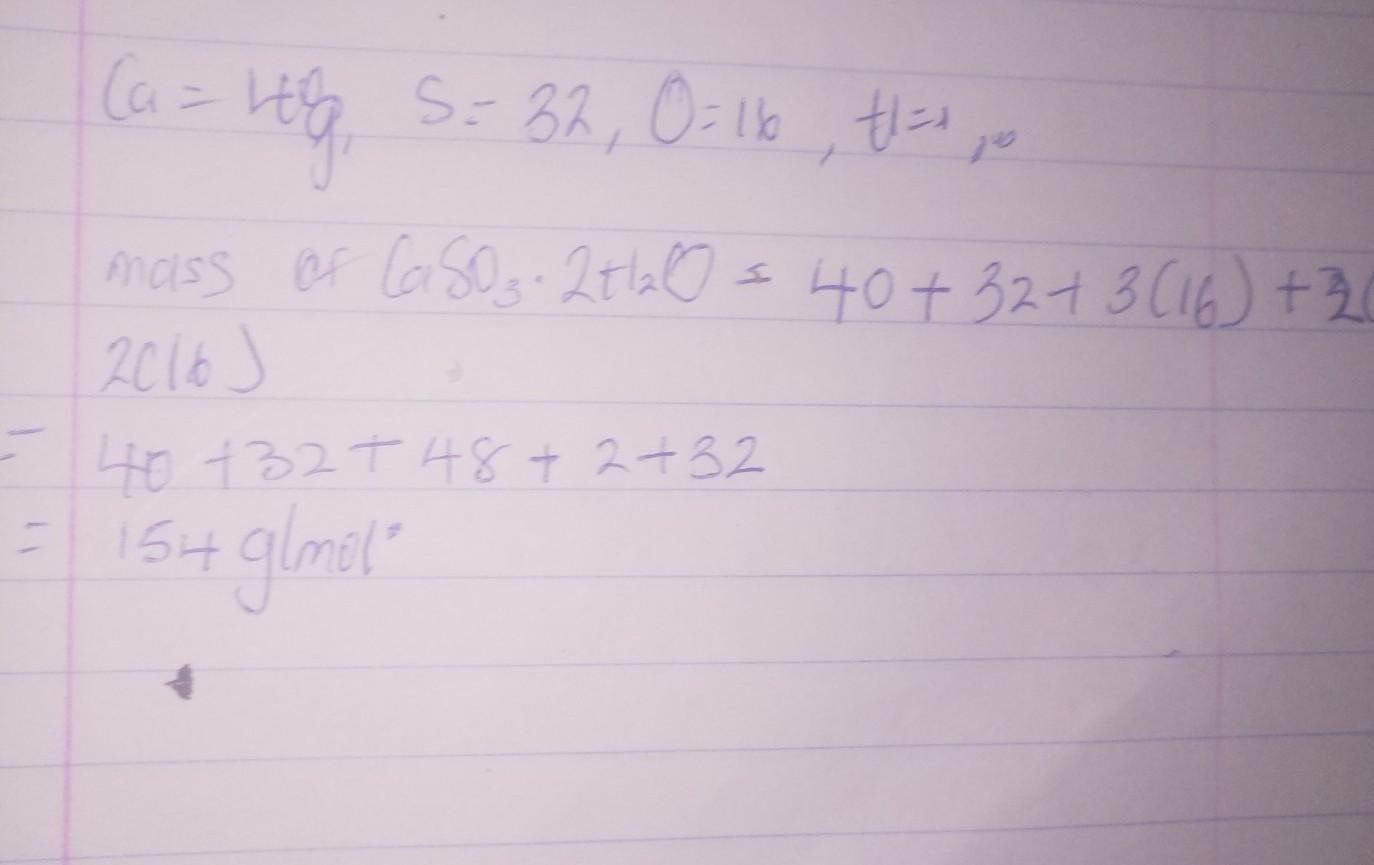 Ca = 40g, S = 32, O = 16, H = 1,
mass of CaSO₃·2H₂O = 40 + 32 + 3(16) + 2(
2(16)
= 40 + 32 + 48 + 2 + 32
= 154 g/mol